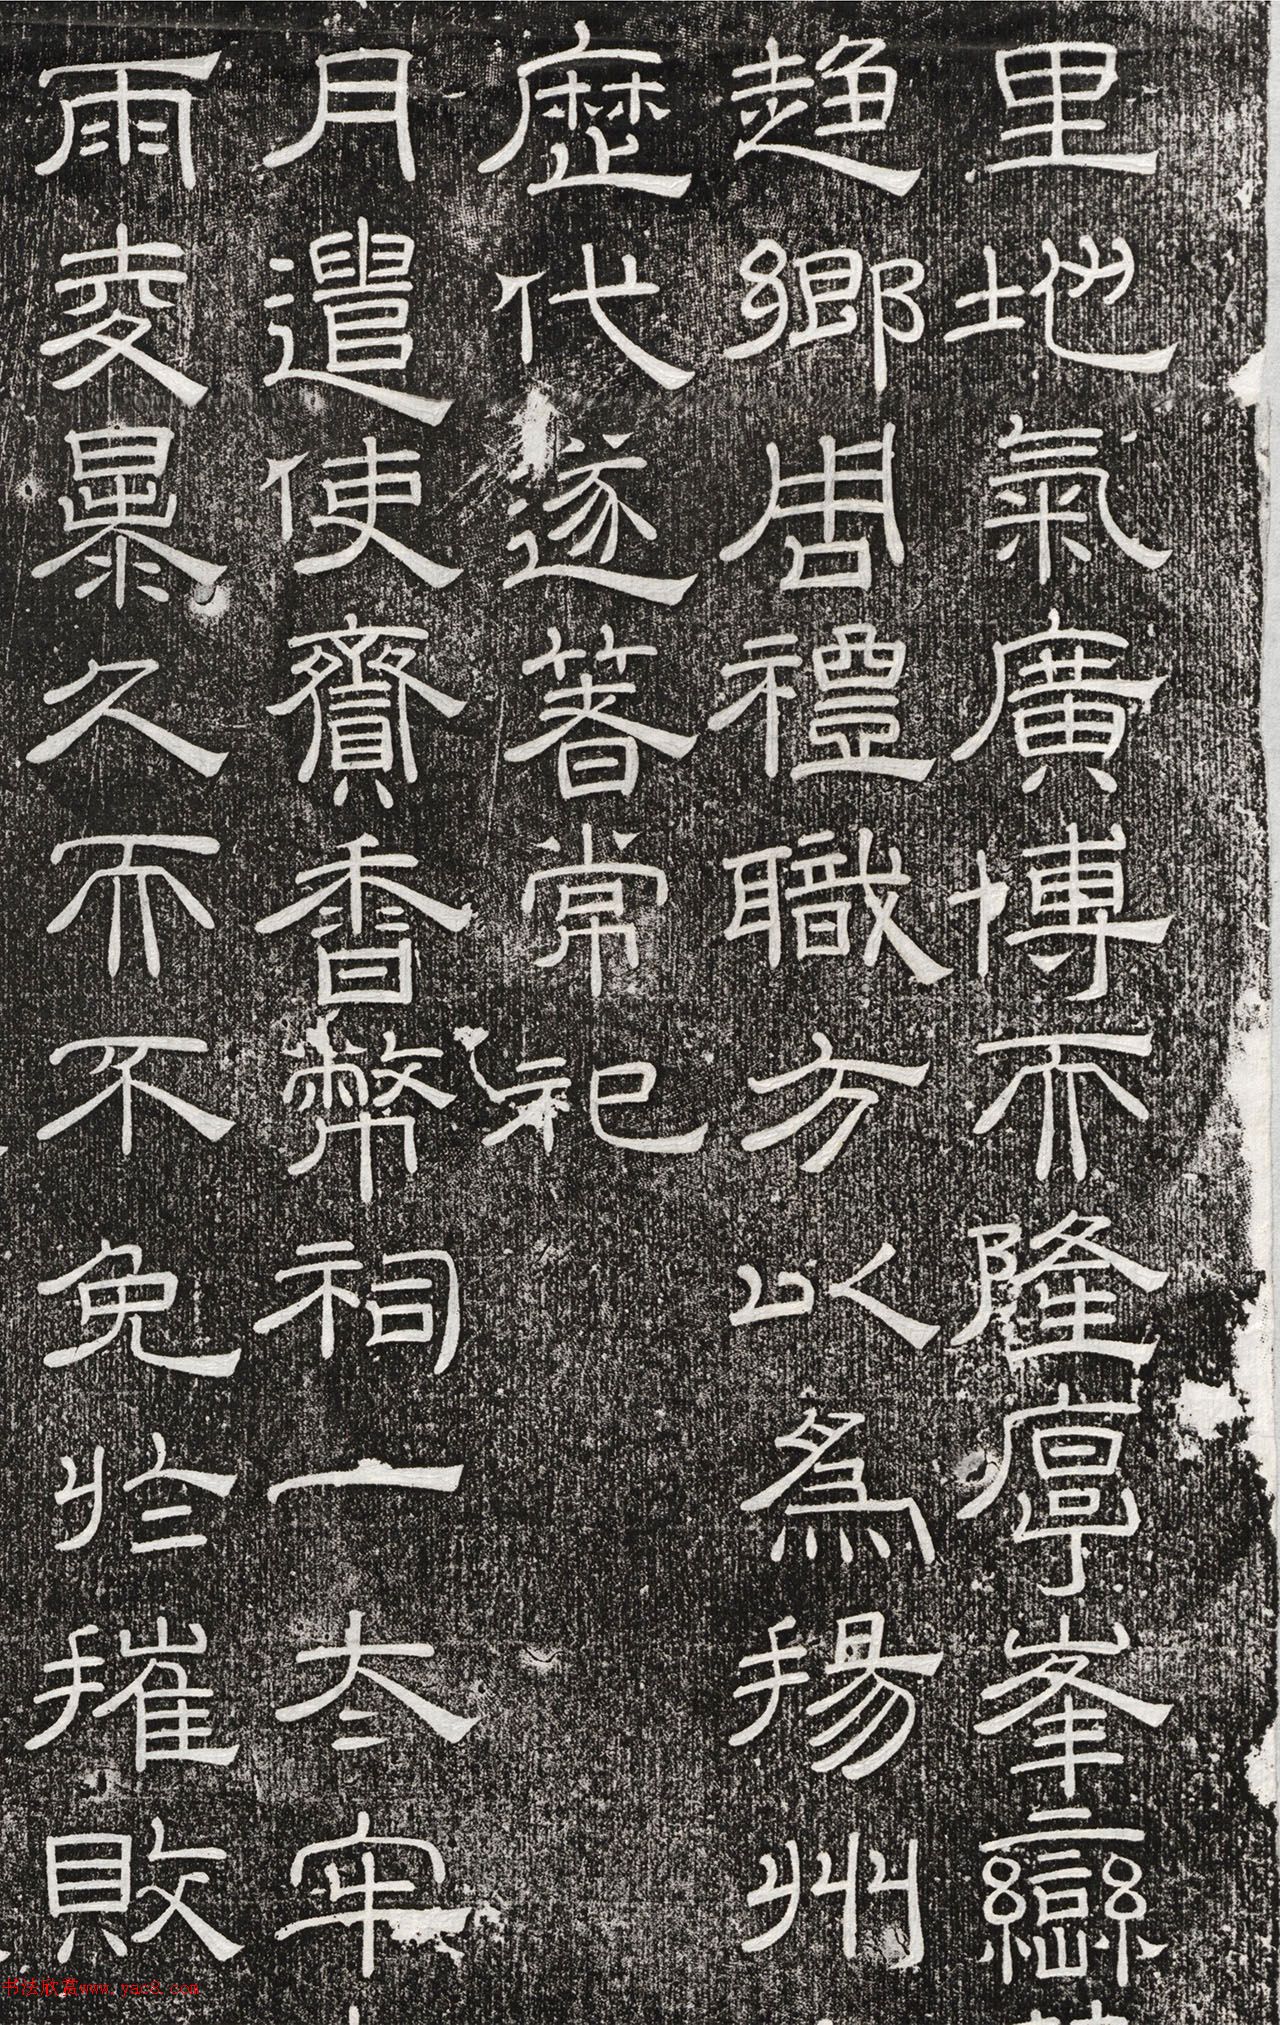 里地氣廣博而隆㝢峯巒
趋鄉周禮職方以為揚州
歷代遂著常祀
月遣使齎香幣祠一太牢
雨麦暴久而不免於摧敗
书法欣赏www.yac8.com